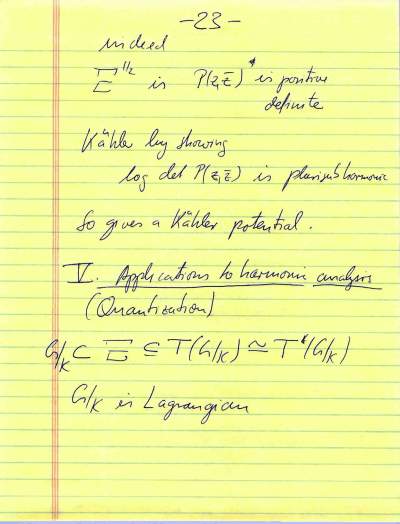 -23-
indeed
Ξ^{1/2} is P(z,z̄) is positive
definite
Kähler by showing
log det P(z,z̄) is plurisubharmonic
So gives a Kähler potential.
V. Applications to harmonic analysis
(Quantization)
G/K ⊂ Ξ ⊆ T(G/K) ≅ T*(G/K)
G/K is Lagrangian